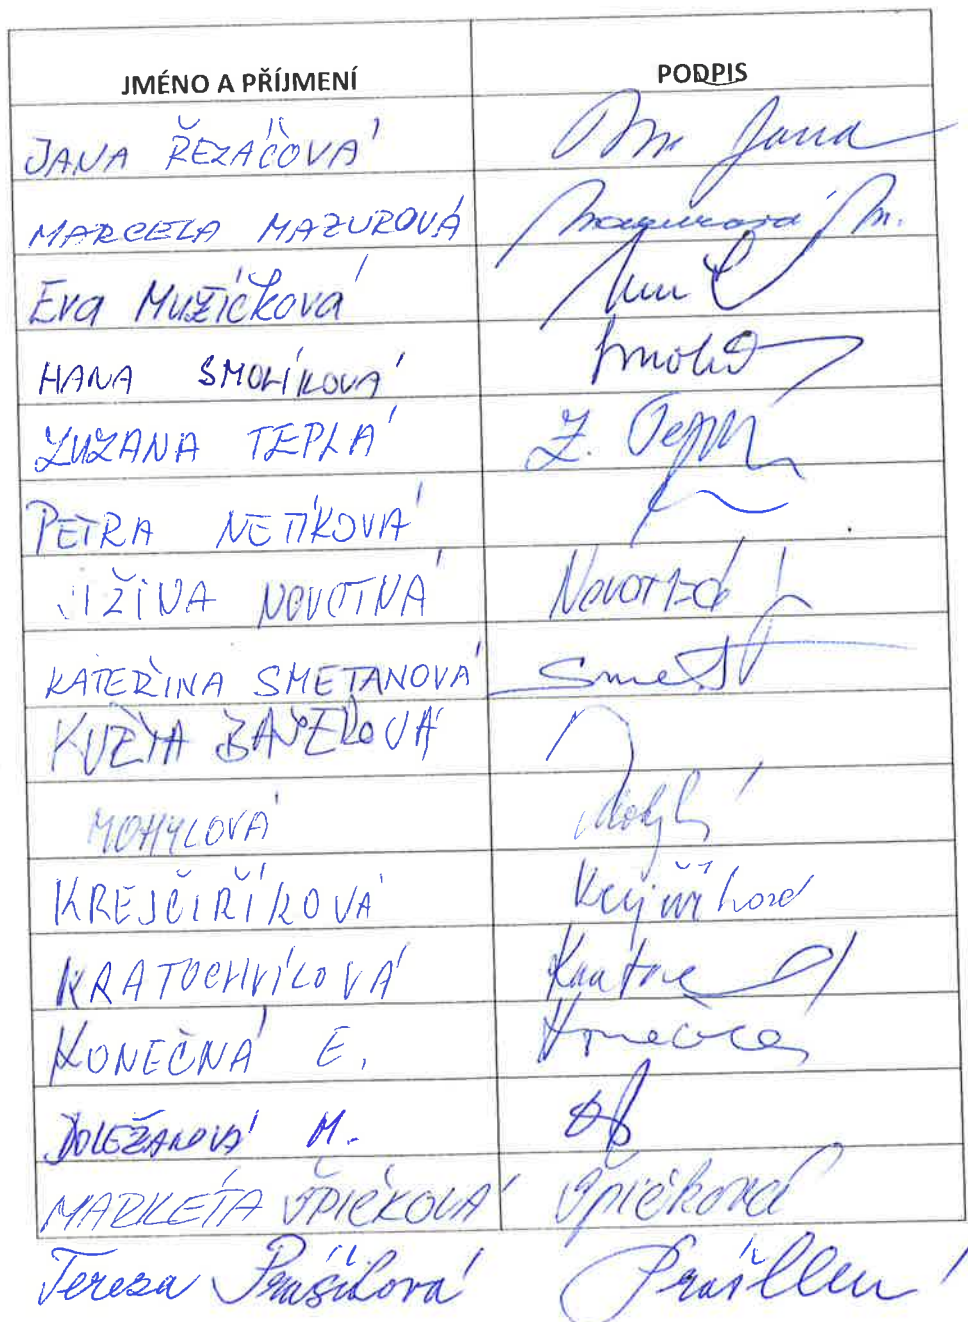 JMÉNO A PŘÍJMENÍ PODPIS
JANA ŘEZÁČOVÁ Jana
MARCELA MAZUROVÁ Mazurová M.
Eva Mužíčková
HANA SMOLÍKOVÁ
ZUZANA TEPLÁ Z.
PETRA NETÍKOVÁ
JIŽINA NOVOTNÁ Novotná
KATEŘINA SMETANOVÁ Smet
KVĚTA
MOHYLOVÁ
KREJČIŘÍKOVÁ Krejčiříková
KRATOCHVÍLOVÁ
KONEČNÁ E. Konečná
DOLEŽALOVÁ M.
MARKÉTA ŠPIČKOVÁ Špičková
Tereza Prášilová